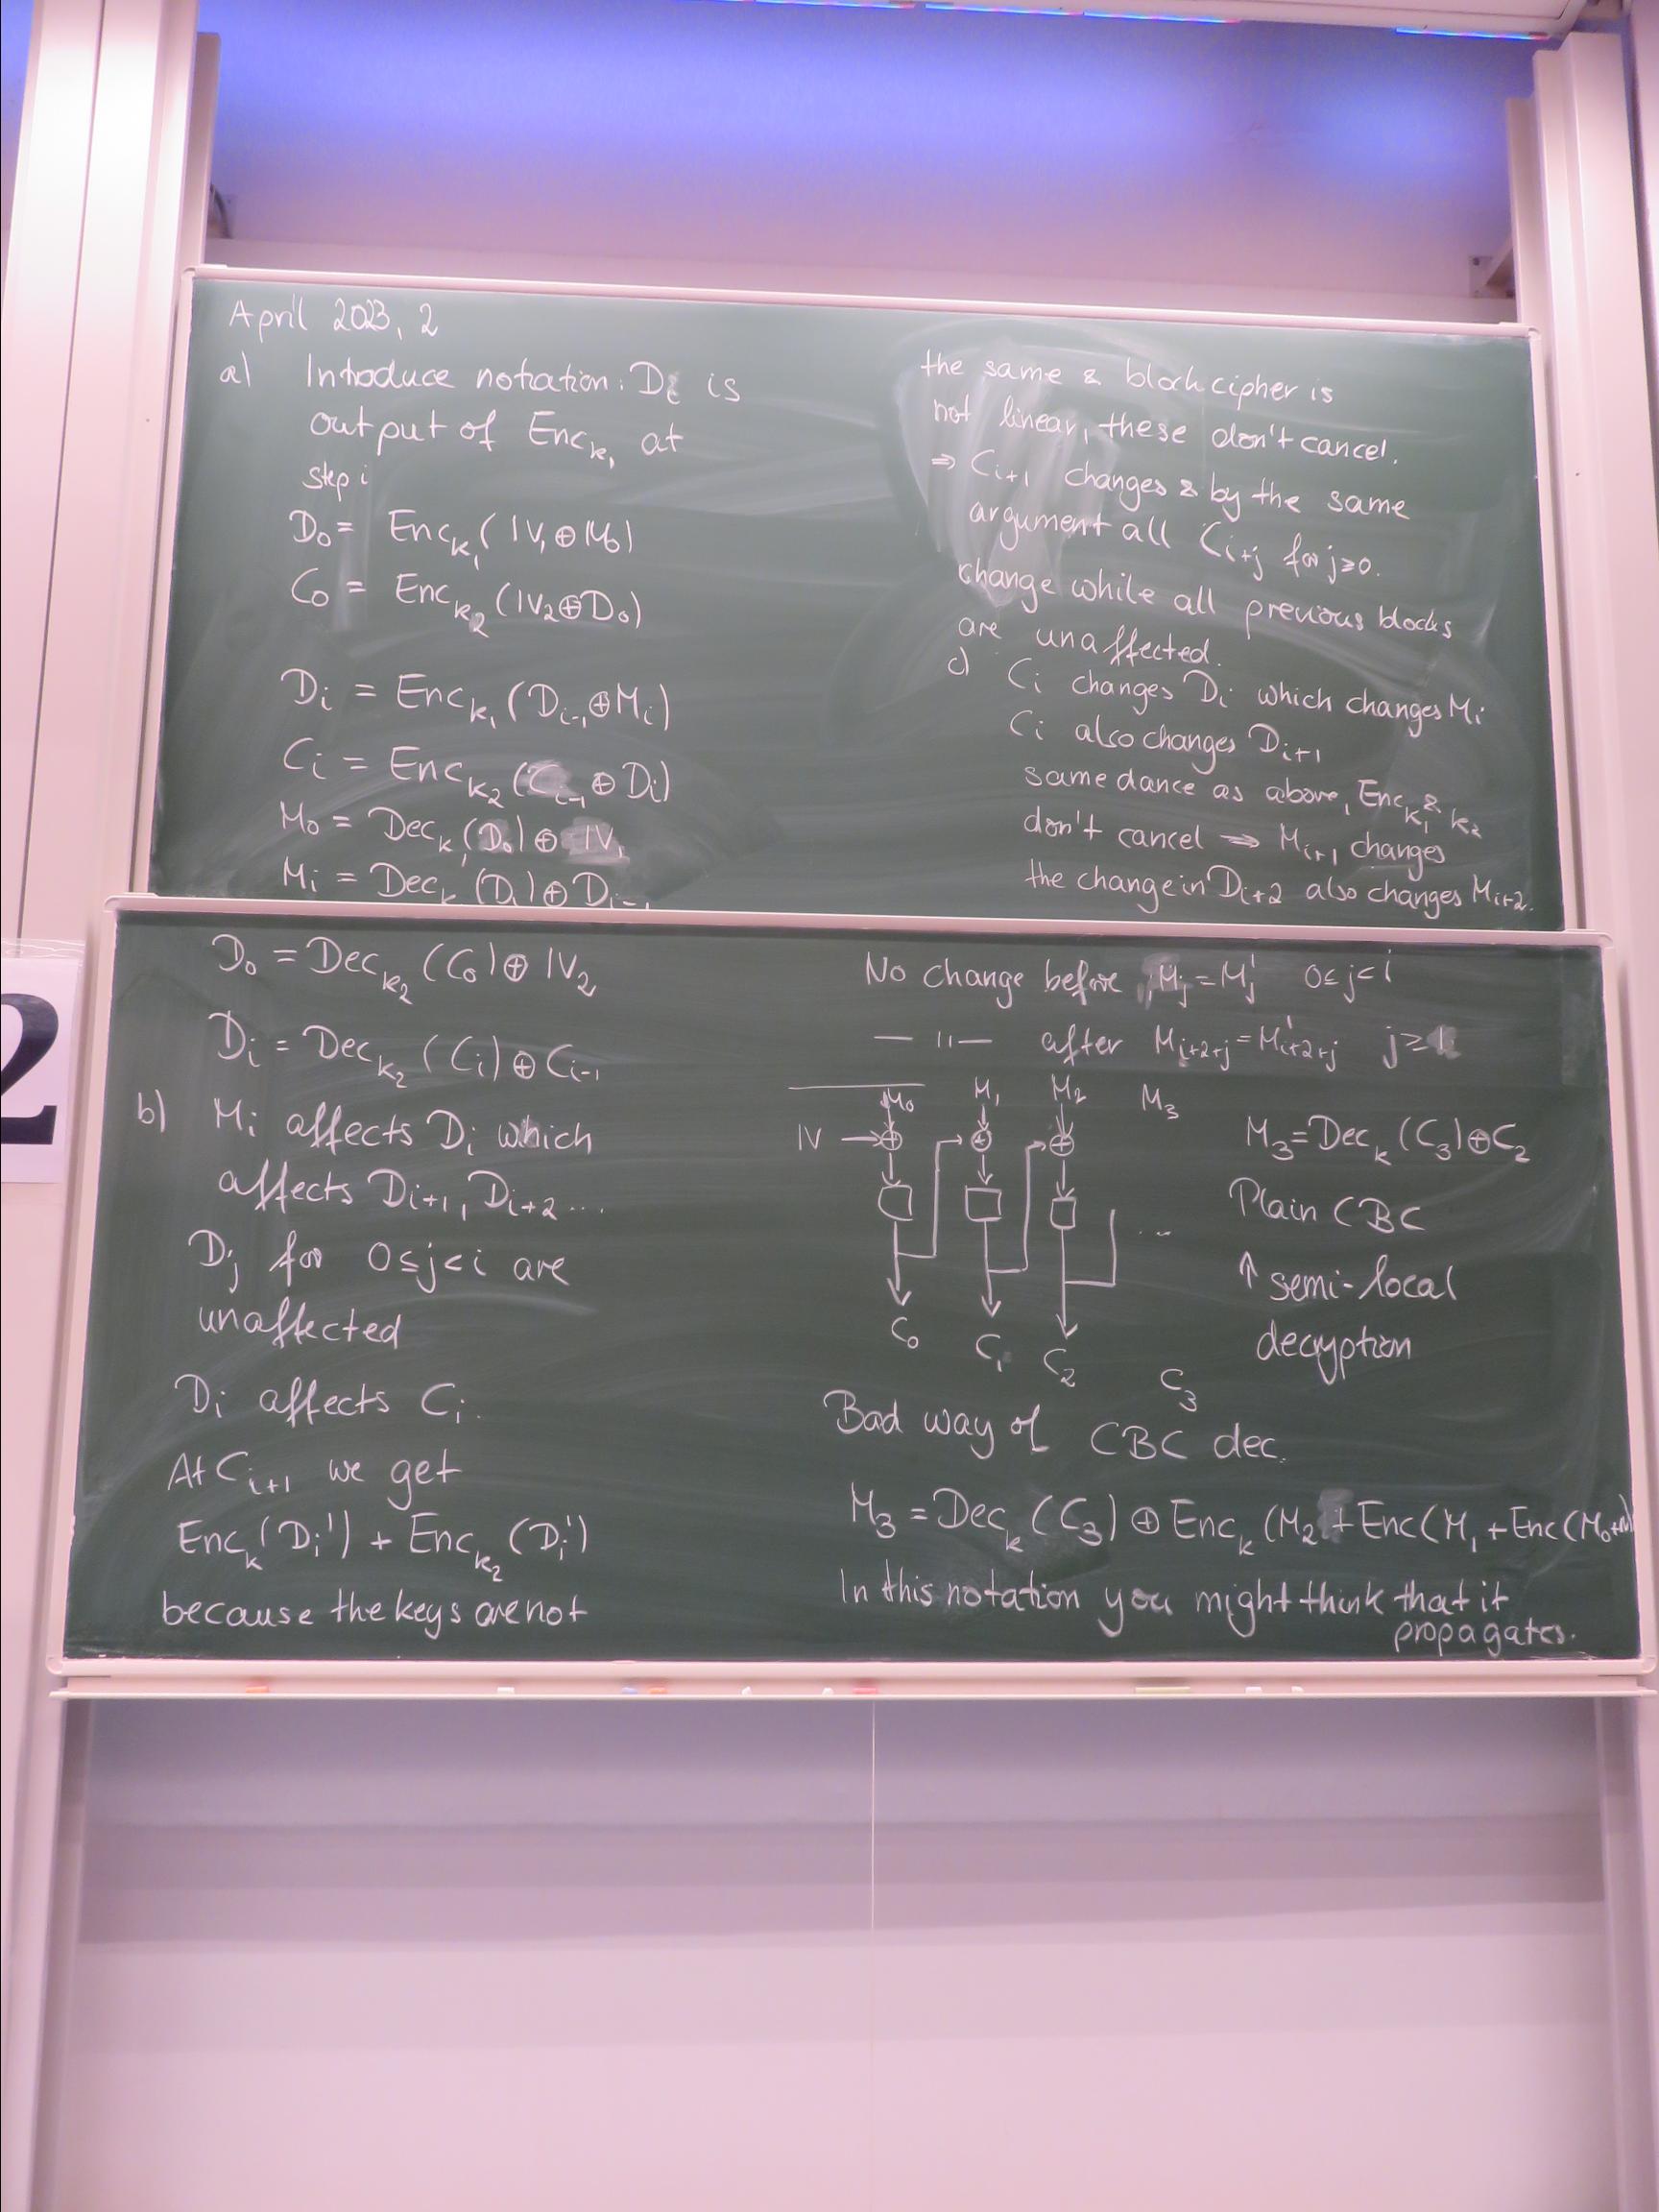 April 2023, 2
a) Introduce notation: Di is
output of Enc_k1 at
step i
D0 = Enc_k1(IV1⊕M0)
C0 = Enc_k2(IV2⊕D0)
Di = Enc_k1(Di-1⊕Mi)
Ci = Enc_k2(Ci-1⊕Di)
M0 = Dec_k1(D0)⊕IV1
Mi = Dec_k1(Di)⊕Di-1
the same & block cipher is
not linear, these don't cancel.
⇒ Ci+1 changes & by the same
argument all Ci+j for j≥0.
change while all previous blocks
are unaffected.
c) Ci changes Di which changes Mi
Ci also changes Di+1
same dance as above, Enc_k1 & k2
don't cancel ⇒ Mi+1 changes
the change in Di+2 also changes Mi+2.
2
D0 = Dec_k2(C0)⊕IV2
Di = Dec_k2(Ci)⊕Ci-1
b) Mi affects Di which
affects Di+1, Di+2...
Dj for 0≤j<i are
unaffected
Di affects Ci.
At Ci+1 we get
Enc_k(Di') + Enc_k2(Di')
because the keys are not
No change before Mj=Mj' 0≤j<i
— " — after Mi+2+j=M'i+2+j j≥1
M0 M1 M2 M3
IV → ⊕ ⊕ ⊕
...
C0 C1 C2 C3
M3=Dec_k(C3)⊕C2
Plain CBC
↑ semi-local
decryption
Bad way of CBC dec.
M3=Dec_k(C3)⊕Enc_k(M2+Enc(M1+Enc(M0+IV)
In this notation you might think that it
propagates.